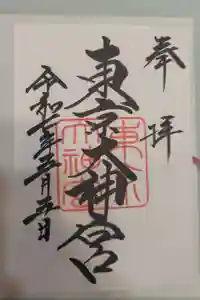 奉拝
東京大神宮
東京
大神宮
令和七年三月五日